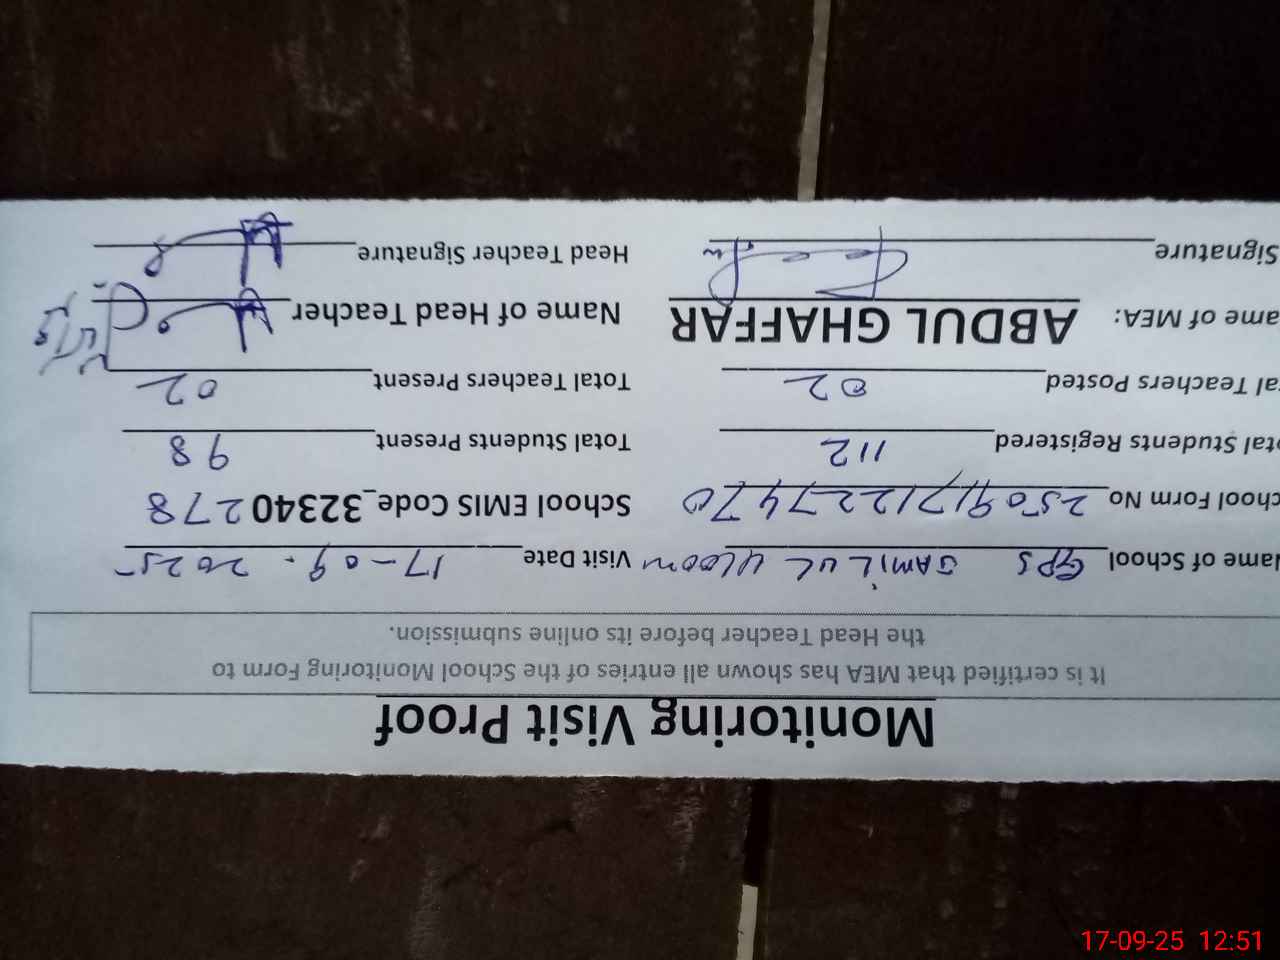 Monitoring Visit Proof
It is certified that MEA has shown all entries of the School Monitoring Form to
the Head Teacher before its online submission.
Name of School GPS JAMILUL uloom Visit Date 17-09-2025
School Form No 2509171227470 School EMIS Code_32340278
Total Students Registered 112 Total Students Present 98
Total Teachers Posted 02 Total Teachers Present 02
Name of MEA: ABDUL GHAFFAR Name of Head Teacher
Signature Head Teacher Signature
17-09-25 12:51